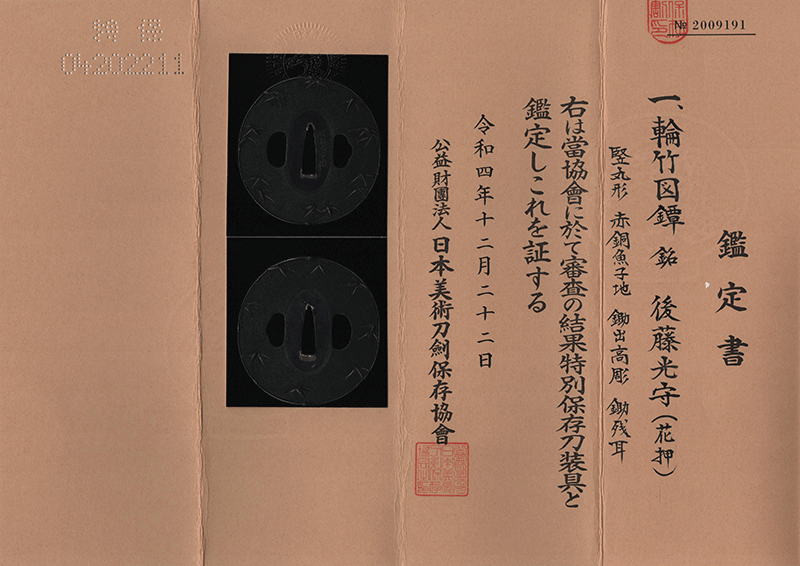 № 2009191
鑑定書
一、輪竹図鐔 銘 後藤光守（花押）
竪丸形 赤銅魚子地 鋤出高彫 鋤残耳
右は當協會に於て審査の結果特別保存刀装具と
鑑定しこれを証する
令和四年十二月二十二日
公益財團法人 日本美術刀劍保存協會
04202211